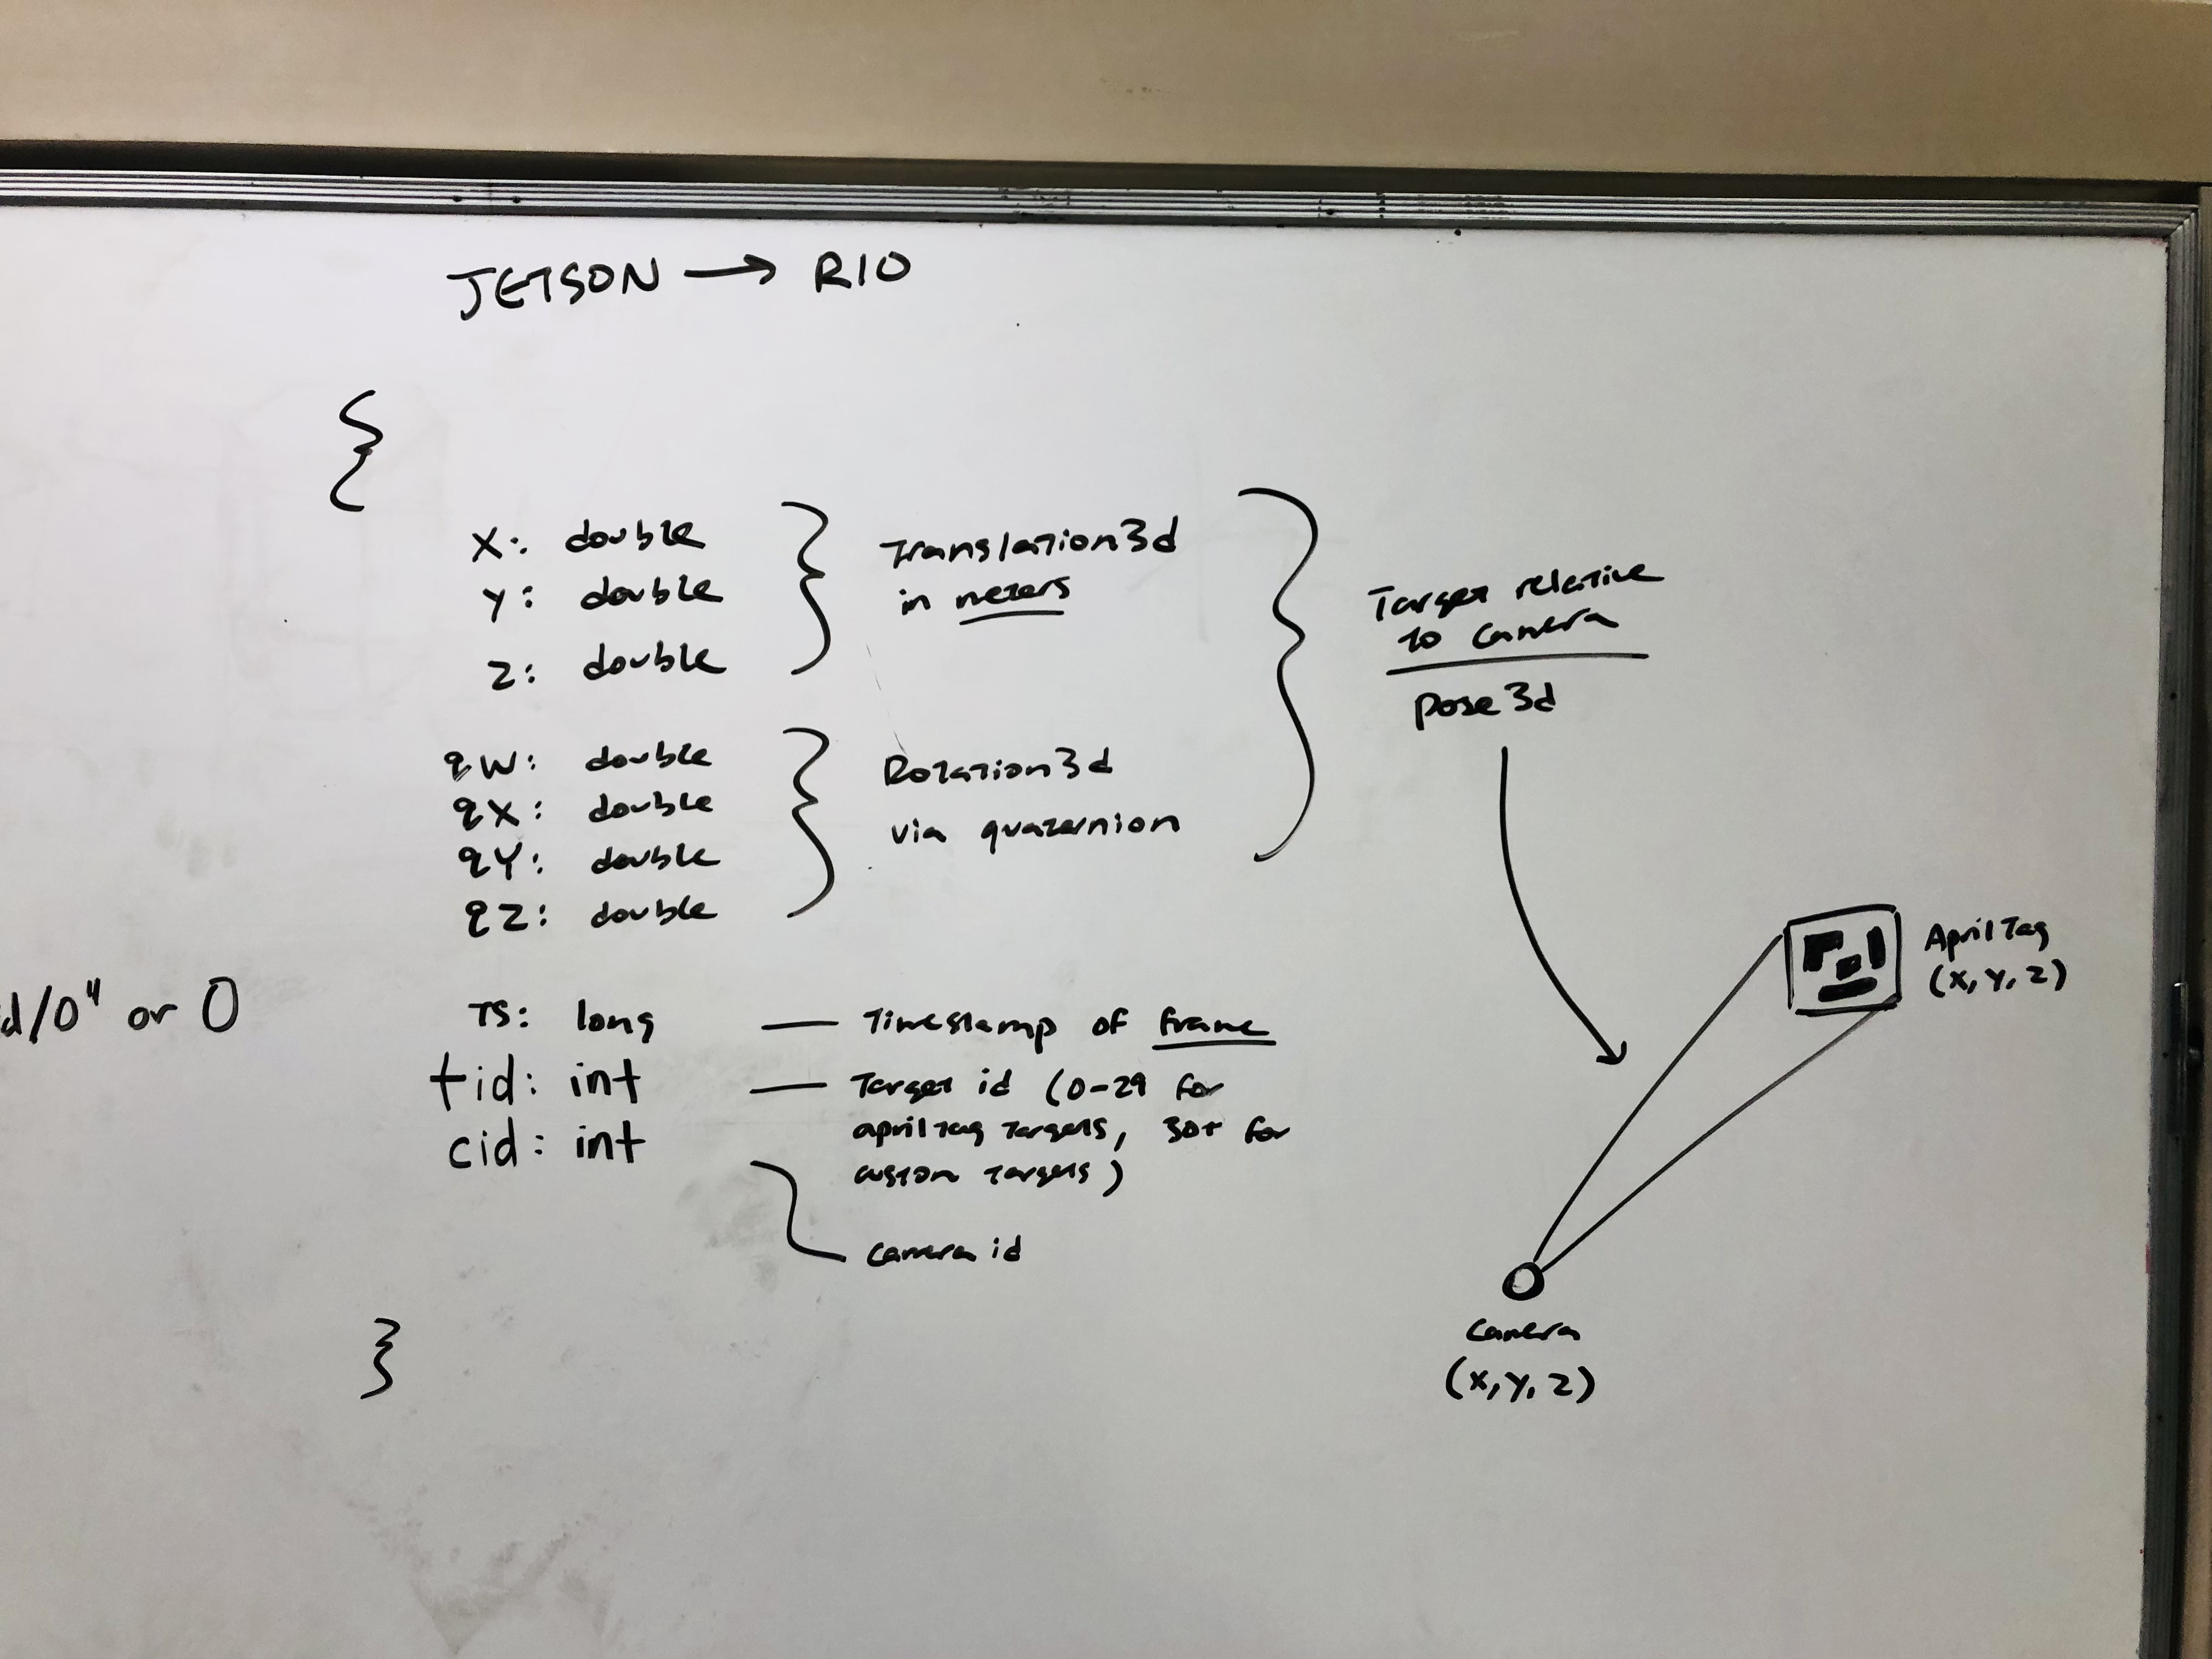 JETSON → RIO
{
X: double
Y: double
Z: double
Translation3d
in meters
qW: double
qX: double
qY: double
qZ: double
Rotation3d
via quaternion
Target relative
to camera
Pose3d
d/0" or 0
TS: long — Timestamp of frame
tid: int — Target id (0-29 for
apriltag targets, 30+ for
custom targets)
cid: int
camera id
}
AprilTag
(x, y, z)
Camera
(x, y, z)